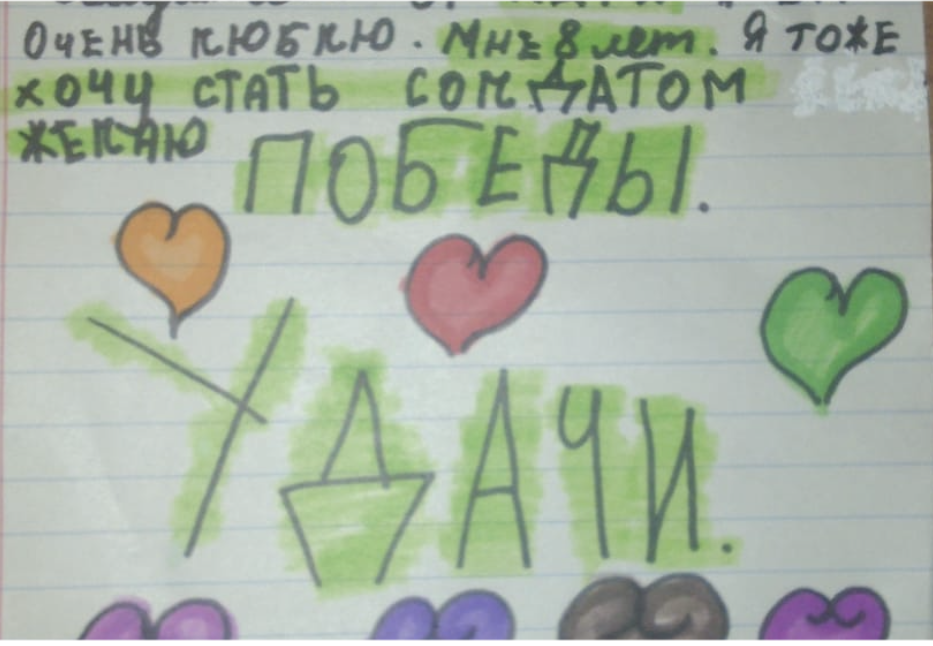 ОЧЕНЬ ЛЮБЛЮ. МНЕ 8 лет. Я ТОЖЕ
ХОЧУ СТАТЬ СОЛДАТОМ
ЖЕЛАЮ ПОБЕДЫ.
УДАЧИ.